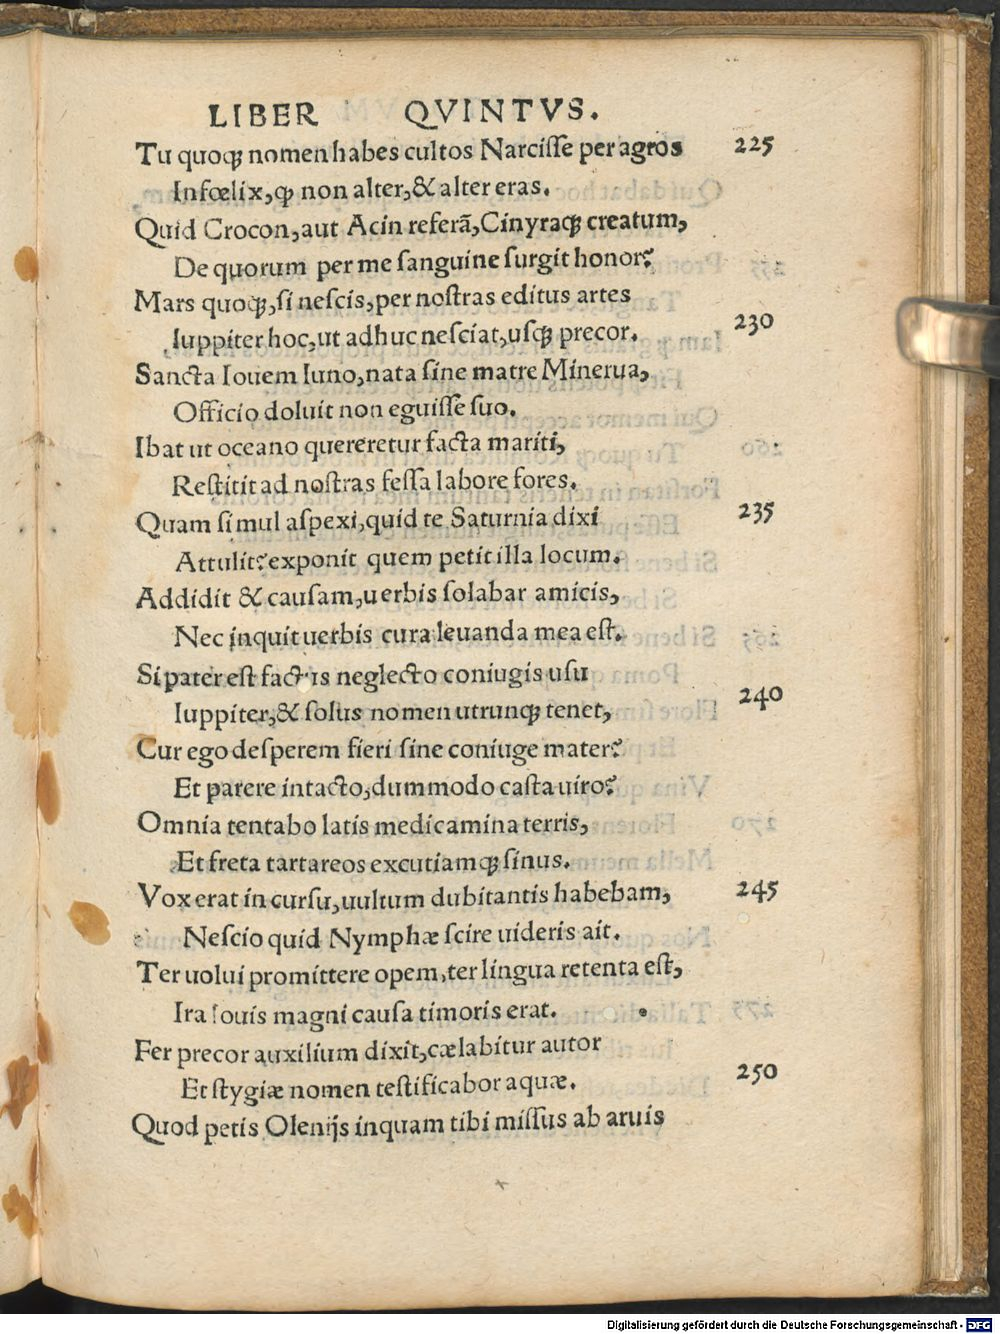 LIBER QVINTVS.
Tu quoqꝫ nomen habes cultos Narcisse per agros 225
Infœlix, ꝙ non alter, & alter eras.
Quid Crocon, aut Acin referã, Cinyraqꝫ creatum,
De quorum per me sanguine surgit honor?
Mars quoqꝫ, si nescis, per nostras editus artes
Iuppiter hoc, ut adhuc nesciat, usqꝫ precor. 230
Sancta Iouem Iuno, nata sine matre Minerua,
Officio doluit non eguisse suo.
Ibat ut oceano quereretur facta mariti,
Restitit ad nostras fessa labore fores.
Quam simul aspexi, quid te Saturnia dixi 235
Attulit? exponit quem petit illa locum.
Addidit & causam, uerbis solabar amicis,
Nec inquit uerbis cura leuanda mea est.
Si pater est factus neglecto coniugis usu
Iuppiter, & solus nomen utrunqꝫ tenet, 240
Cur ego desperem fieri sine coniuge mater?
Et parere intacto, dummodo casta uiro?
Omnia tentabo latis medicamina terris,
Et freta tartareos excutiamqꝫ sinus.
Vox erat in cursu, uultum dubitantis habebam, 245
Nescio quid Nymphæ scire uideris ait.
Ter uolui promittere opem, ter lingua retenta est,
Ira Iouis magni causa timoris erat.
Fer precor auxilium dixit, cælabitur autor
Et stygiæ nomen testificabor aquæ. 250
Quod petis Olenijs inquam tibi missus ab aruis
Digitalisierung gefördert durch die Deutsche Forschungsgemeinschaft - DFG